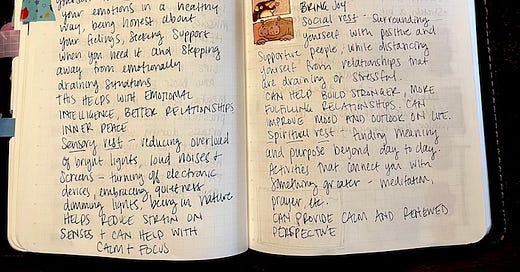 your emotions in a healthy
way, being honest about
your feelings, seeking support
when you need it and stepping
away from emotionally
draining situations.
THIS HELPS WITH EMOTIONAL
INTELLIGENCE, BETTER RELATIONSHIPS
INNER PEACE
Sensory rest - reducing overload
of bright lights, loud noises +
screens - turning off electronic
devices, embracing quietness
dimming lights, being in nature
HELPS REDUCE STRAIN ON
SENSES + CAN HELP WITH
CALM + FOCUS
BRING JOY
Social rest - Surrounding
yourself with positive and
supportive people, while distancing
yourself from relationships that
are draining or stressful.
CAN HELP BUILD STRONGER, MORE
FULFILLING RELATIONSHIPS. CAN
IMPROVE MOOD AND OUTLOOK ON LIFE.
Spiritual rest - finding meaning
and purpose beyond day to day
Activities that connect you with
something greater - meditation,
prayer, etc.
CAN PROVIDE CALM AND RENEWED
PERSPECTIVE